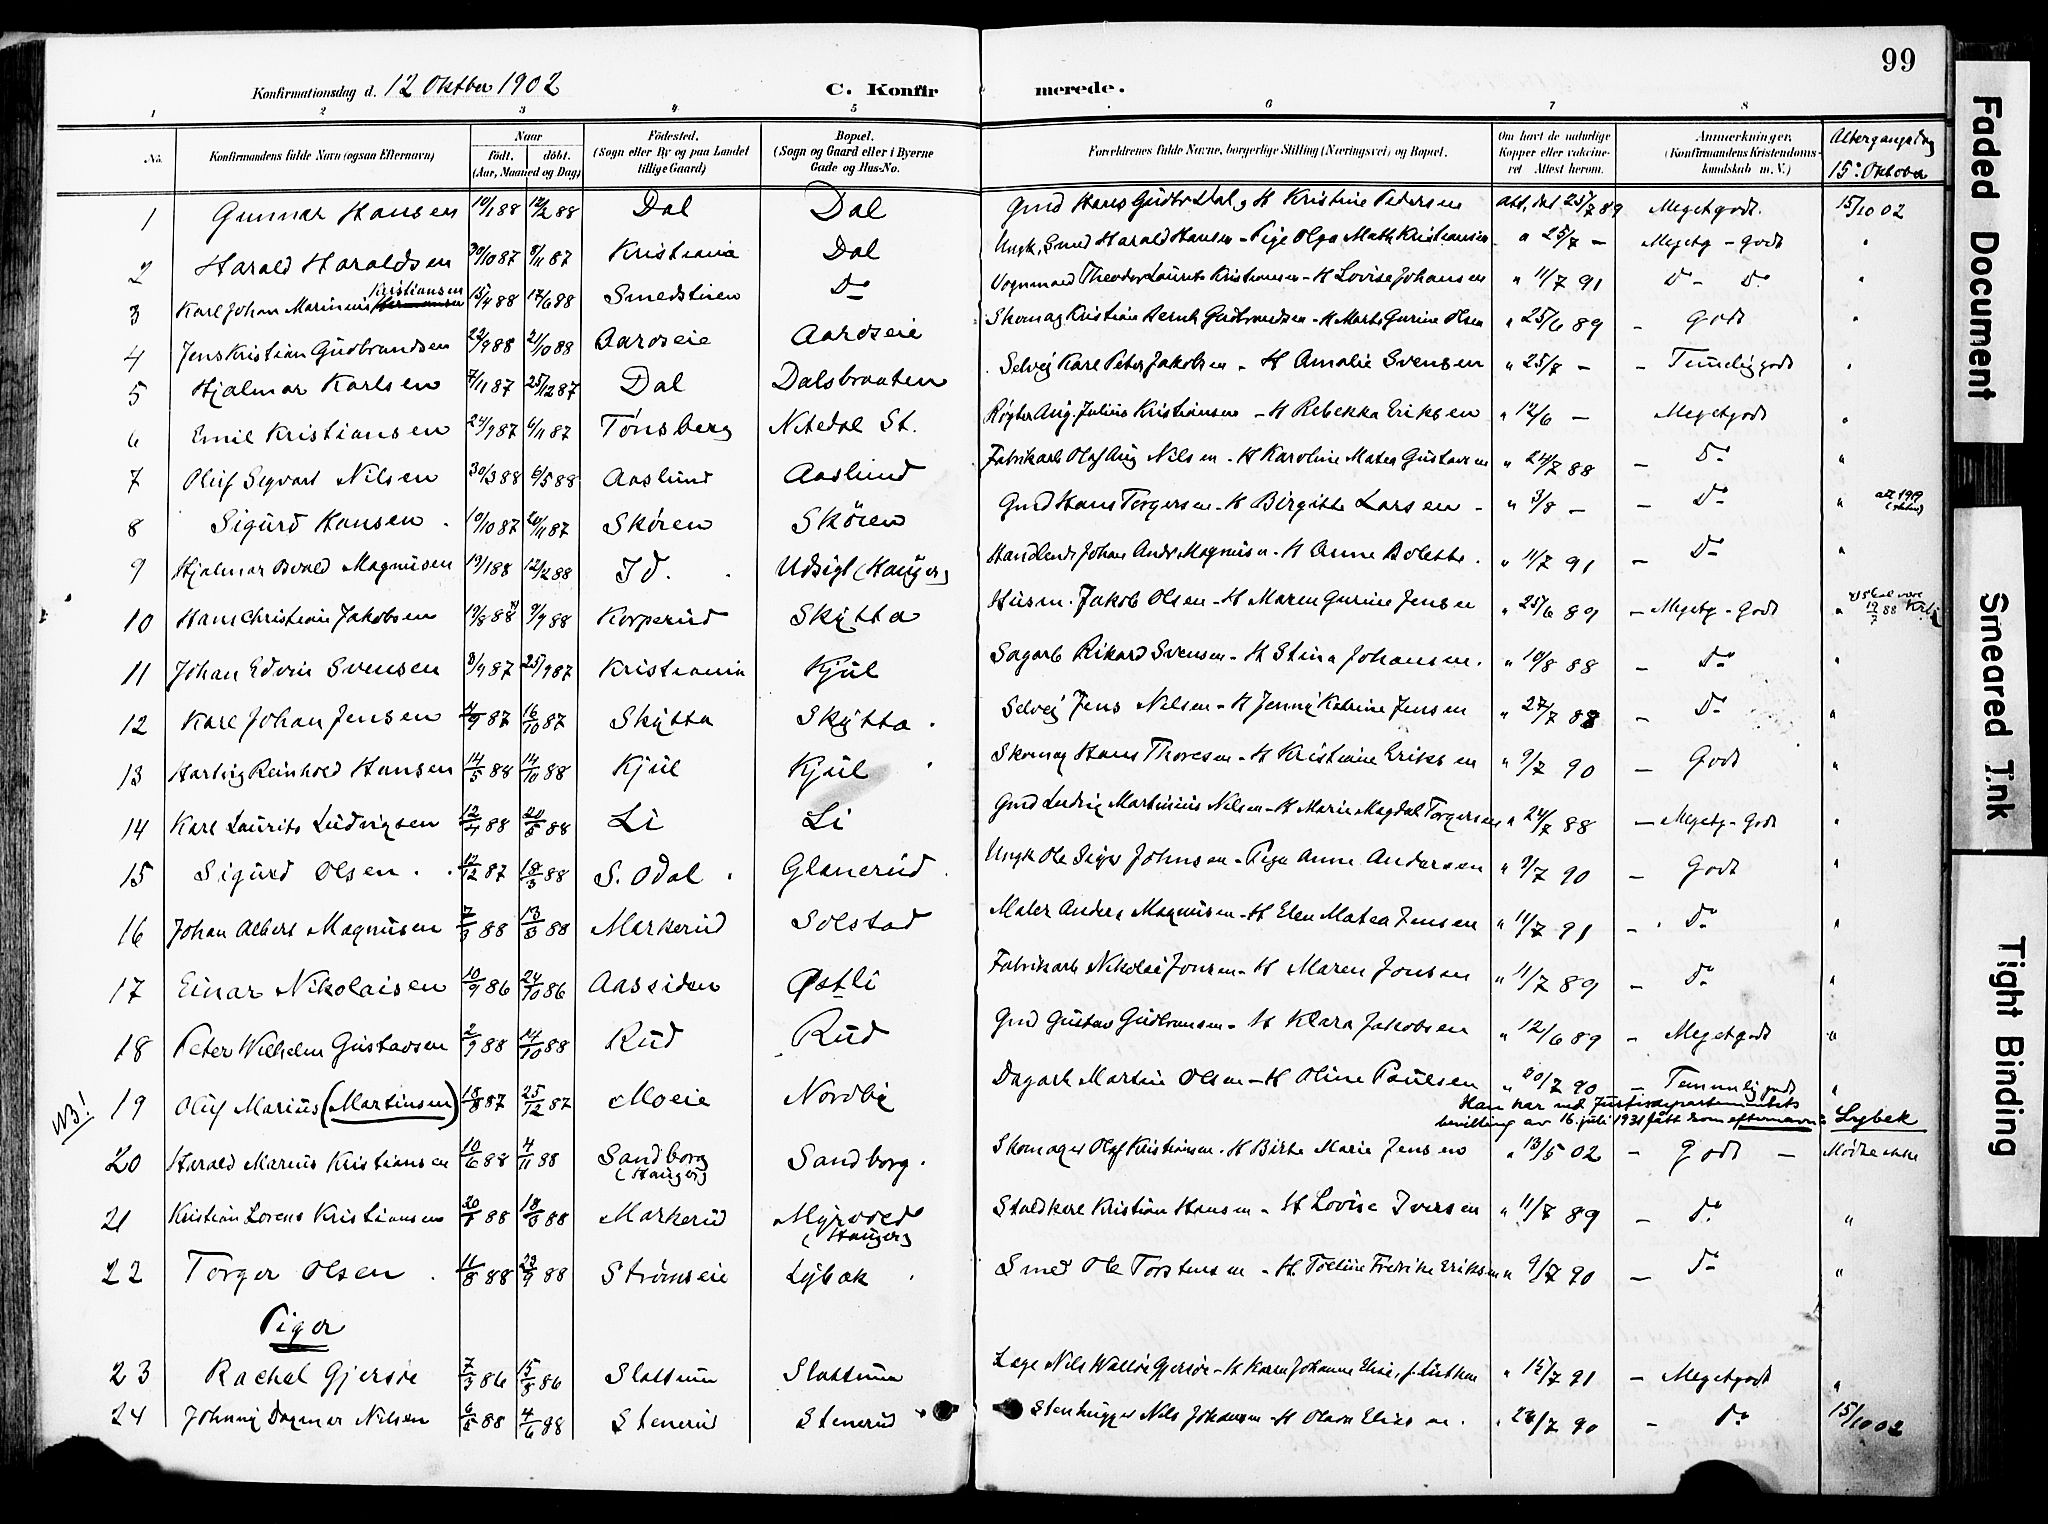 99
Konfirmationsdag d. 12 Oktber 1902 C. Konfirmerede.
1 2 3 4 5 6 7 8
No. Konfirmandens fulde Navn (ogsaa Efternavn) Naar født. døbt. (Aar, Maaned og Dag) Fødested. (Sogn eller By og paa Landet tillige Gaard) Bopæl. (Sogn og Gaard eller i Byerne Gade og Hus-No. Forældrenes fulde Navne, borgerlige Stilling (Næringsvei) og Bopæl. Om havt de naturlige Kopper eller vakcineret Attest herom. Anmærkninger. (Konfirmandens Kristendomskundskab m. V.) Altergangsdag 15de Oktober
1 Gunnar Hansen 10/1 88 12/2 88 Dal Dal Gmd Hans Gudbr Dal, H Kristine Pedersen att. dat 25/7 89 Megetgodt. 15/10 02
2 Harald Haraldsen 30/10 87 8/11 87 Kristiania Dal Ungk, Smed Harald Hansen - Pige Olga Math Kristiansen " 25/7 — Megetg - godt "
3 Karl Johan Marinius Kristiansen 15/4 88 17/6 88 Smedstuen Do Vognmand Theodor Laurits Kristiansen - H Lovise Johansen " 11/7 91 Do - Do "
4 Jens Kristian Gudbrandsen 22/9 88 21/10 88 Aaroseie Aaroseie Skomag Kristian Bernh Gudbrandsen - H Marte Gurine Olsen " 25/6 89 - Godt "
5 Hjalmar Karlsen 7/11 87 25/12 87 Dal Dalsbraaten Selvej Karl Peter Jakobsen - H Amalie Svensen " 25/7 — - Temeligodt "
6 Emil Kristiansen 24/9 87 6/11 87 Tønsberg Nitedal St. Røgter Aug. Julius Kristiansen - H Rebekka Eriksen " 12/6 — Megetgodt "
7 Oluf Sigvart Nilsen 30/3 88 6/5 88 Aaslund Aaslund Fabrikarb Olaf Aug Nilsen - H Karoline Matea Gustavsen " 24/7 88 - Do "
8 Sigurd Hansen 10/10 87 20/11 87 Skøren Skøren Gmd Hans Torgersen - H Birgitte Larsen - " 3/8 — - Do "
9 Hjalmar Osvald Magnusen 19/1 88 12/2 88 Id. Udsigt (Hauger) Handlende Johan Andr Magnusen - H Anne Bolette. " 11/7 91 - Do "
10 Hans Christian Jakobsen 19/8 88 9/9 88 Korperud Skytta Husm. Jakob Olsen - H Maren Gurine Jensen " 25/6 89 - Megetg - Godt "
11 Johan Edvin Svensen 8/9 87 25/9 87 Kristiania Kjul Sagarb Rikard Svensen - H Stina Johansen. " 10/8 88 - Do "
12 Karl Johan Jensen 4/9 87 16/10 87 Skytta Skytta. Selvej Jens Nilsen - H Jenny Katrine Jensen " 27/7 88 - Do "
13 Hartvig Reinhold Hansen 14/5 88 14/10 88 Kjul Kjul Skomag Hans Thoresen - H Kristiane Eriksen " 9/7 90 - Godt "
14 Karl Laurits Ludvigsen 12/4 88 20/5 88 Li Li Gmd Ludvig Martinius Nilsen - H Marie Magdal Torgersen " 24/7 88 - Megetg - Godt "
15 Sigurd Olsen 12/12 87 18/3 88 S. Odal Glanerud Ungk Ole Siger Johnsen - Pige Anne Andersen " 9/7 90 - Godt "
16 Johan Albert Magnusen 7/3 88 13/5 88 Markerud Solstad Maler Anders Magnusen - H Elen Matea Jensen " 11/7 91 - Do "
17 Einar Nikolaisen 10/9 86 24/10 86 Aassiden Østli Fabrikarb Nikolai Jonsen - H Maren Jonsen " 11/7 89 - Do "
18 Peter Wilhelm Gustavsen 2/9 88 14/10 88 Rud Rud Gmd Gustav Gudbransen - H Klara Jakobsen " 12/6 89 - Megetgodt "
NB! 19 Oluf Marius (Martinsen) 18/8 87 25/12 87 Moeie Nordby Dagarb Martin Olsen - H Oline Paulsen " 30/7 90 - Temmelig godt "
Han har ved Justisdepartementets
bevilling av 16. juli 1931 fått som efternavn: Lybek
20 Harald Marius Kristiansen 10/6 88 4/11 88 Sandborg (Hauger) Sandborg. Skomager Olaf Kristiansen - H Birte Marie Jensen " 13/5 02 - Godt - Mødte ikke
21 Kristian Lorens Kristiansen 18/3 88 Markerud Myrvold (Hauger) Staldkarl Kristian Hansen - H Lovise Iversen " 11/7 89 - Do "
22 Torger Olsen 11/8 88 23/9 88 Strømseie Lybæk Smed Ole Torstensen - H. Toline Fredrike Eriksen " 9/7 90 - Do "
Piger
23 Rachel Gjersøe 7/3 86 15/8 86 Slattum Slattum Læge Nils Walløe Gjersøe - H Karen Johanne Elise, f. Lütken " 15/7 91 - Megetgodt "
24 Johnny Dagmar Nilsen 6/5 88 4/6 88 Stenerud Stenerud Stenhugger Nils Johansen - H Olava Eliasen. " 28/7 90 - Do 15/10 02
Faded Document
Smeared Ink
Tight Binding